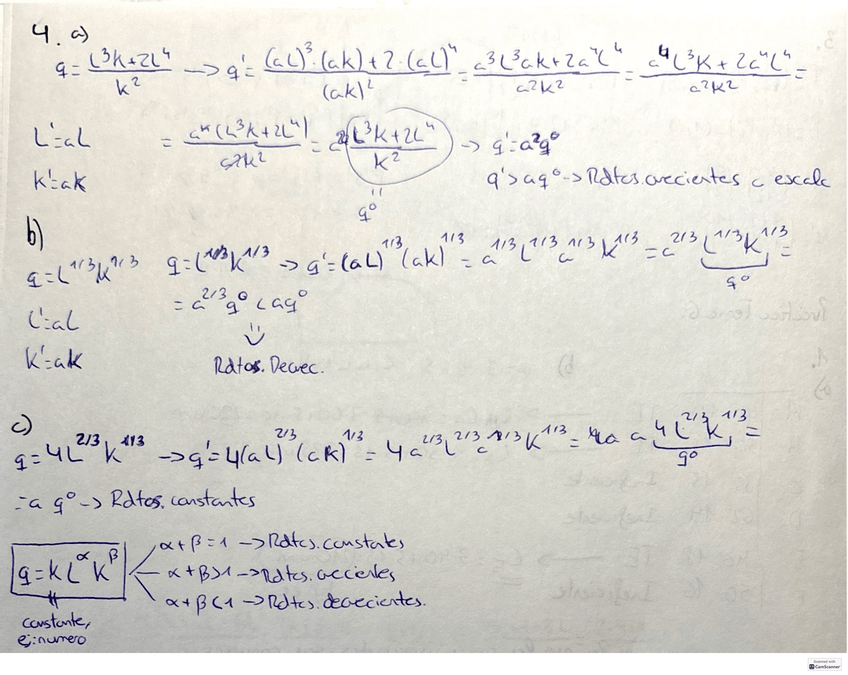 4. a)
q = (L³K+2L⁴)/K² → q' = ((aL)³·(aK)+2·(aL)⁴)/(aK)² = (a³L³aK+2a⁴L⁴)/(a²K²) = (a⁴L³K+2a⁴L⁴)/(a²K²) =
L'=aL
K'=aK
= (a⁴(L³K+2L⁴))/(a²K²) = a² (L³K+2L⁴)/K² → q'=a²q⁰
q⁰
q'>aq⁰ → Rdtos. crecientes a escala
b)
q=L^1/3 K^1/3
L'=aL
K'=aK
q=L^1/3 K^1/3 → q'=(aL)^1/3 (aK)^1/3 = a^1/3 L^1/3 a^1/3 K^1/3 = a^2/3 L^1/3 K^1/3 =
q⁰
= a^2/3 q⁰ < aq⁰
Rdtos. Decrec.
c)
q=4L^2/3 K^1/3 → q'=4(aL)^2/3 (aK)^1/3 = 4a^2/3 L^2/3 a^1/3 K^1/3 = a 4L^2/3 K^1/3 =
q⁰
=a q⁰ → Rdtos. constantes
q=kL^α K^β
α+β=1 → Rdtos. constantes
α+β>1 → Rdtos. crecientes
α+β<1 → Rdtos. decrecientes.
constante,
ej: numero
CamScanner